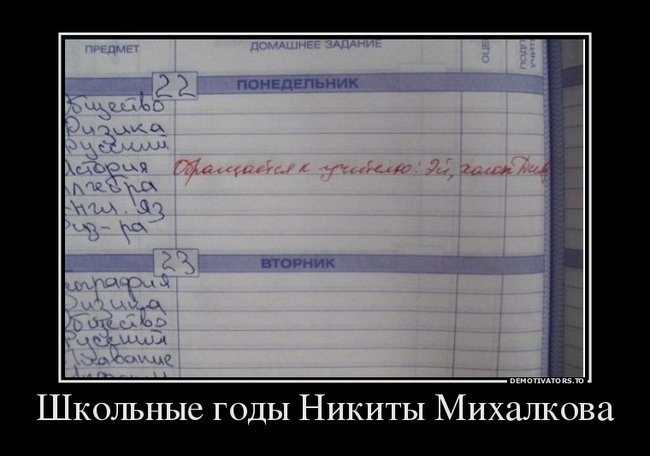 ПРЕДМЕТ ДОМАШНЕЕ ЗАДАНИЕ
22 ПОНЕДЕЛЬНИК
Общество
Физика
Русский
История Обращается к учителю: Эй, холоп
Алгебра
Англ. яз
Физ-ра
23 ВТОРНИК
География
Физика
Общество
Русский
DEMOTIVATORS.TO
Школьные годы Никиты Михалкова